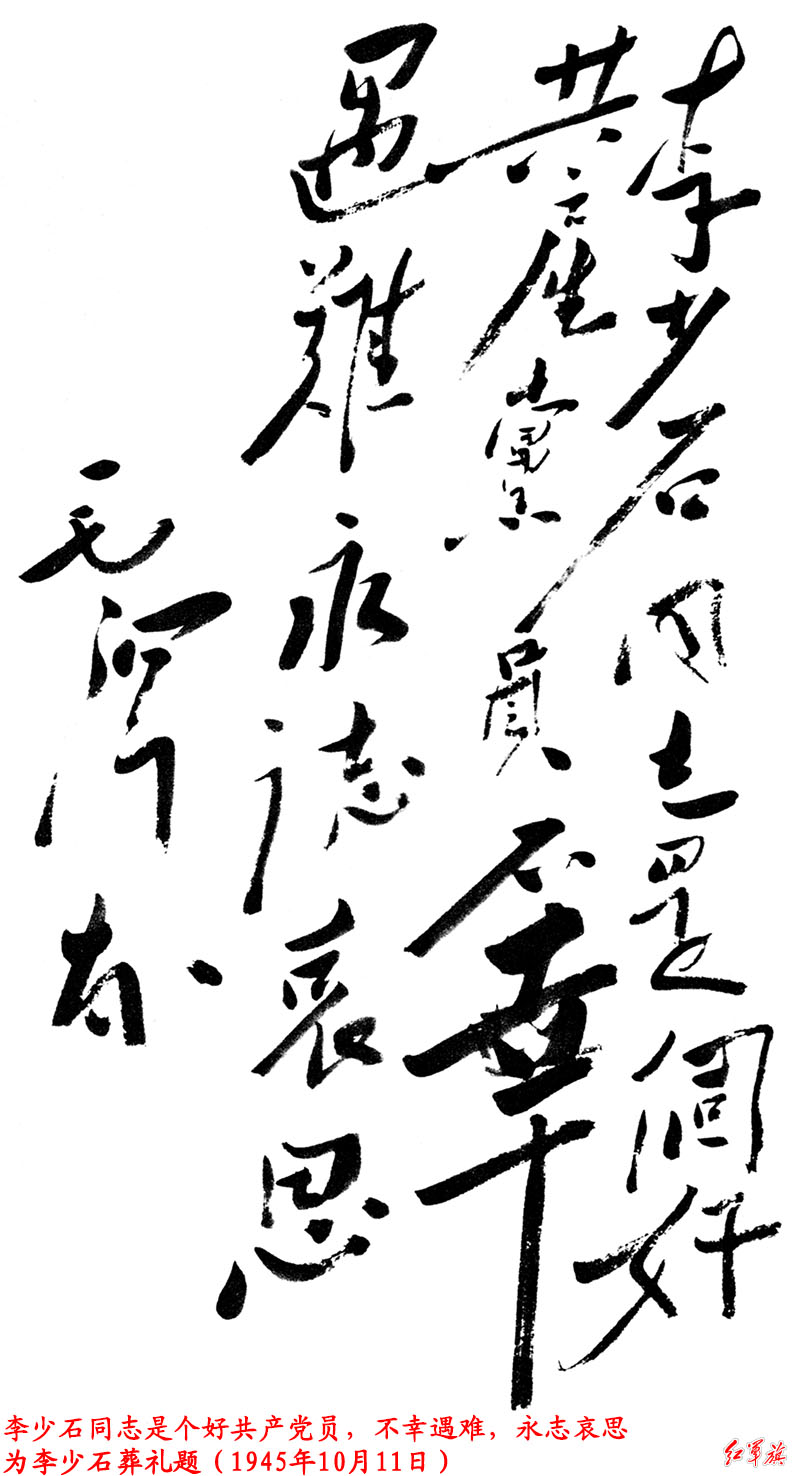 李少石同志是個好
共产黨員不幸
遇難永誌哀思
毛泽东
李少石同志是个好共产党员，不幸遇难，永志哀思
为李少石葬礼题（1945年10月11日）
红军旗